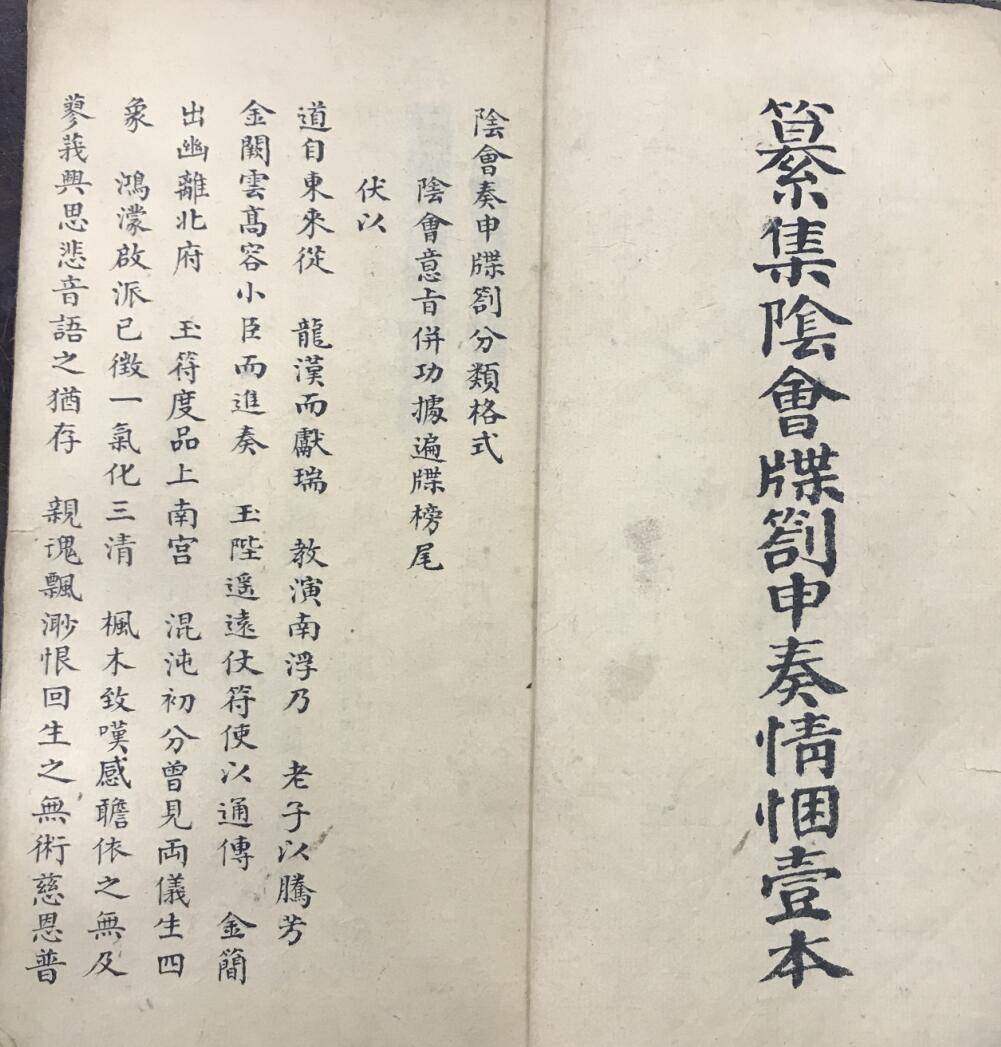 纂集陰會牒劄申奏情悃壹本
陰會奏申牒劄分類格式
陰會意旨併功據遍牒榜尾
伏以
道自東來從　龍漢而獻瑞　教演南浮乃　老子以騰芳
金闕雲高容小臣而進奏　玉陛遥遠仗符使以通傳　金簡
出幽離北府　玉符度品上南宫　混沌初分曾見両儀生四
象　鴻濛啟派已徵一氣化三清　楓木致嘆感瞻依之無及
蓼莪興思悲音語之猶存　親魂飄渺恨回生之無術慈恩普